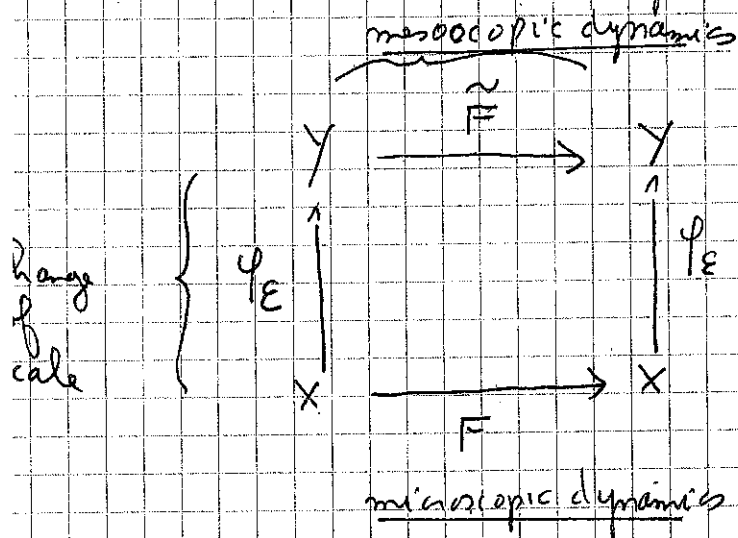 mesoscopic dynamics
F̃
Y Y
hange
f
cale
φε φε
X X
F
microscopic dynamics